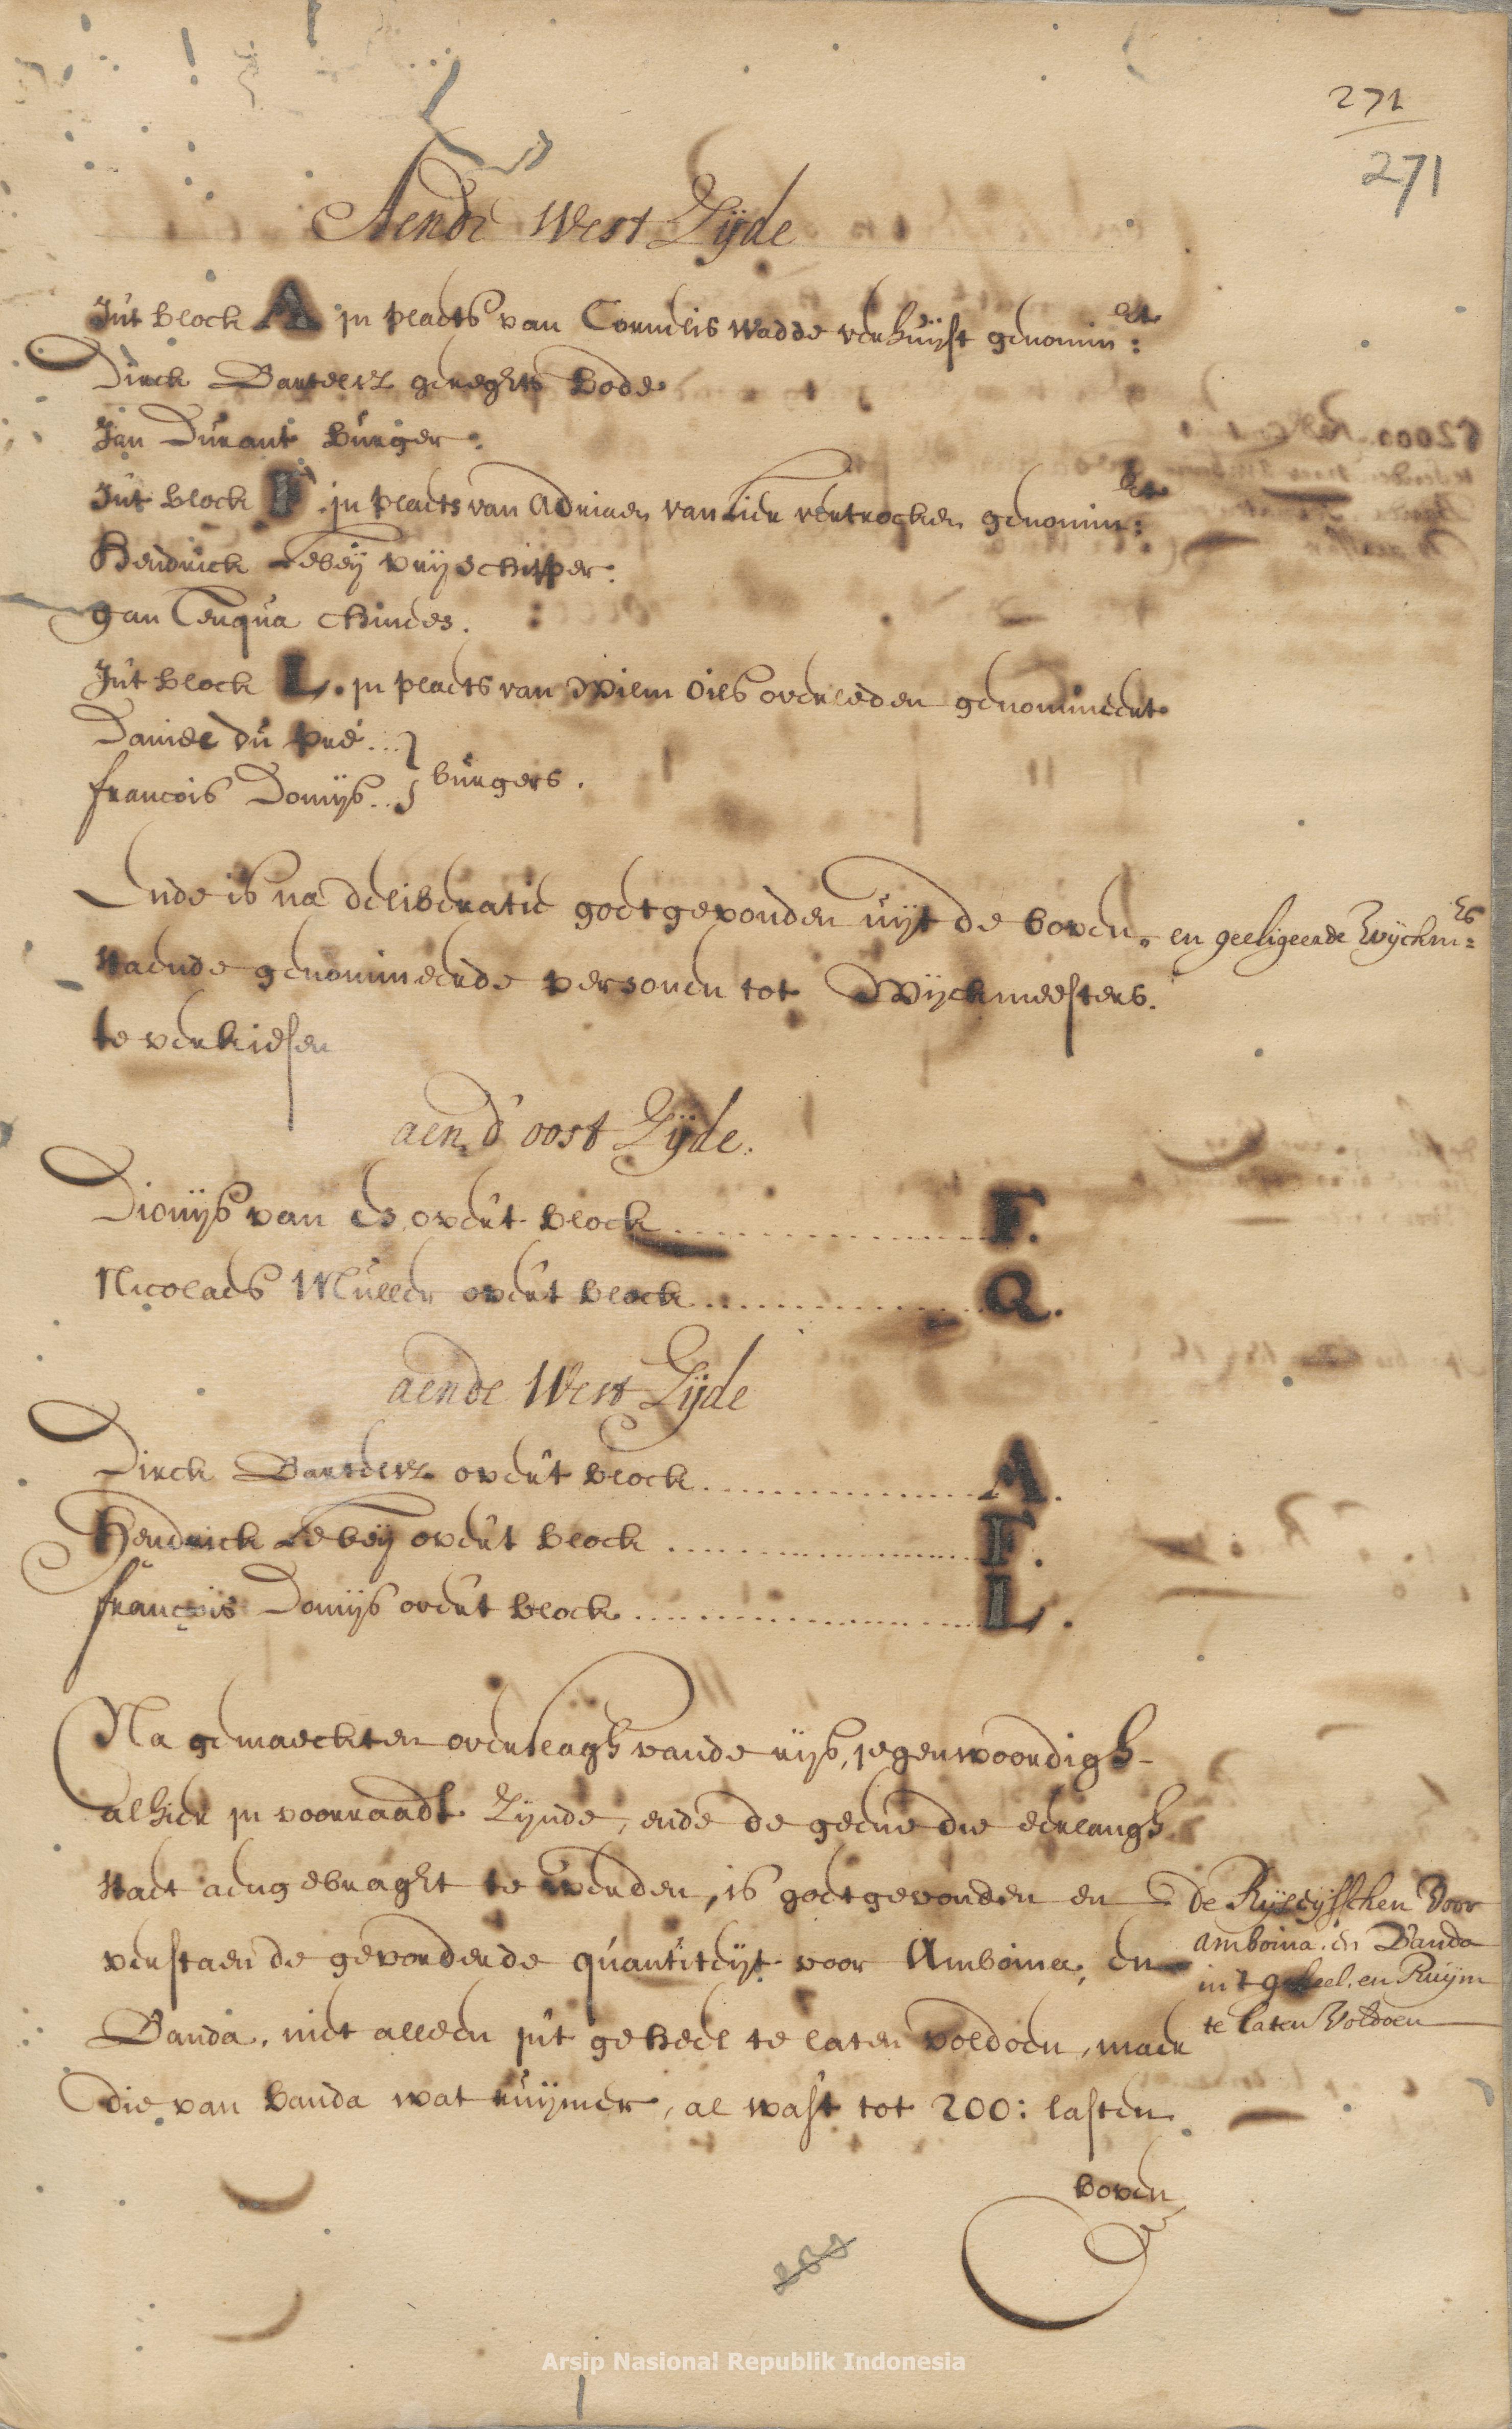 271
271
Aende West Zijde
Int block A in plaets van Cornelis wadde verhuijst genomin:eert
Dirck Bartelsz geregts bode
Jan Durant burger.
Int block F. in plaets van Adriaen van Lier vertrocken genomin:eert
Hendrick Lebeij vrij schipper.
gan Tenqua Chinees.
Int block L. in plaets van Wilem Oils overleden genomineert
Daniel du Pré...
burgers.
francois Domijs..
Ende is na deliberatie goetgevonden uijt de boven-
en geeligeerde Wijckm:rs
staende genomineerde persoonen tot Wijckmeesters.
te verkiesen
aen d' oost Zijde.
Dionijs van Es over't block F.
Nicolaes Muller over't block Q.
aende West Zijde
Dirck Bartelsz over't block A.
Hendrick Lebeij over't block F.
françois Domijs over't block L.
Na gemaeckten overslagh vande rijs, jegenwoordigh
alhier in voorraadt Zijnde, ende de geene die eerlangh
staet aengebraght te werden, is goetgevonden en
verstaen de gevorderde quantiteijt voor Amboina, en
Banda, niet alleen in't geheel te laten voldoen, maer
die van banda wat ruijmer, al wast tot 200: lasten
de Rijs eijsschen Voor
Amboina en Banda
in't geheel en Ruijm
te laten Voldoen
boven
Arsip Nasional Republik Indonesia